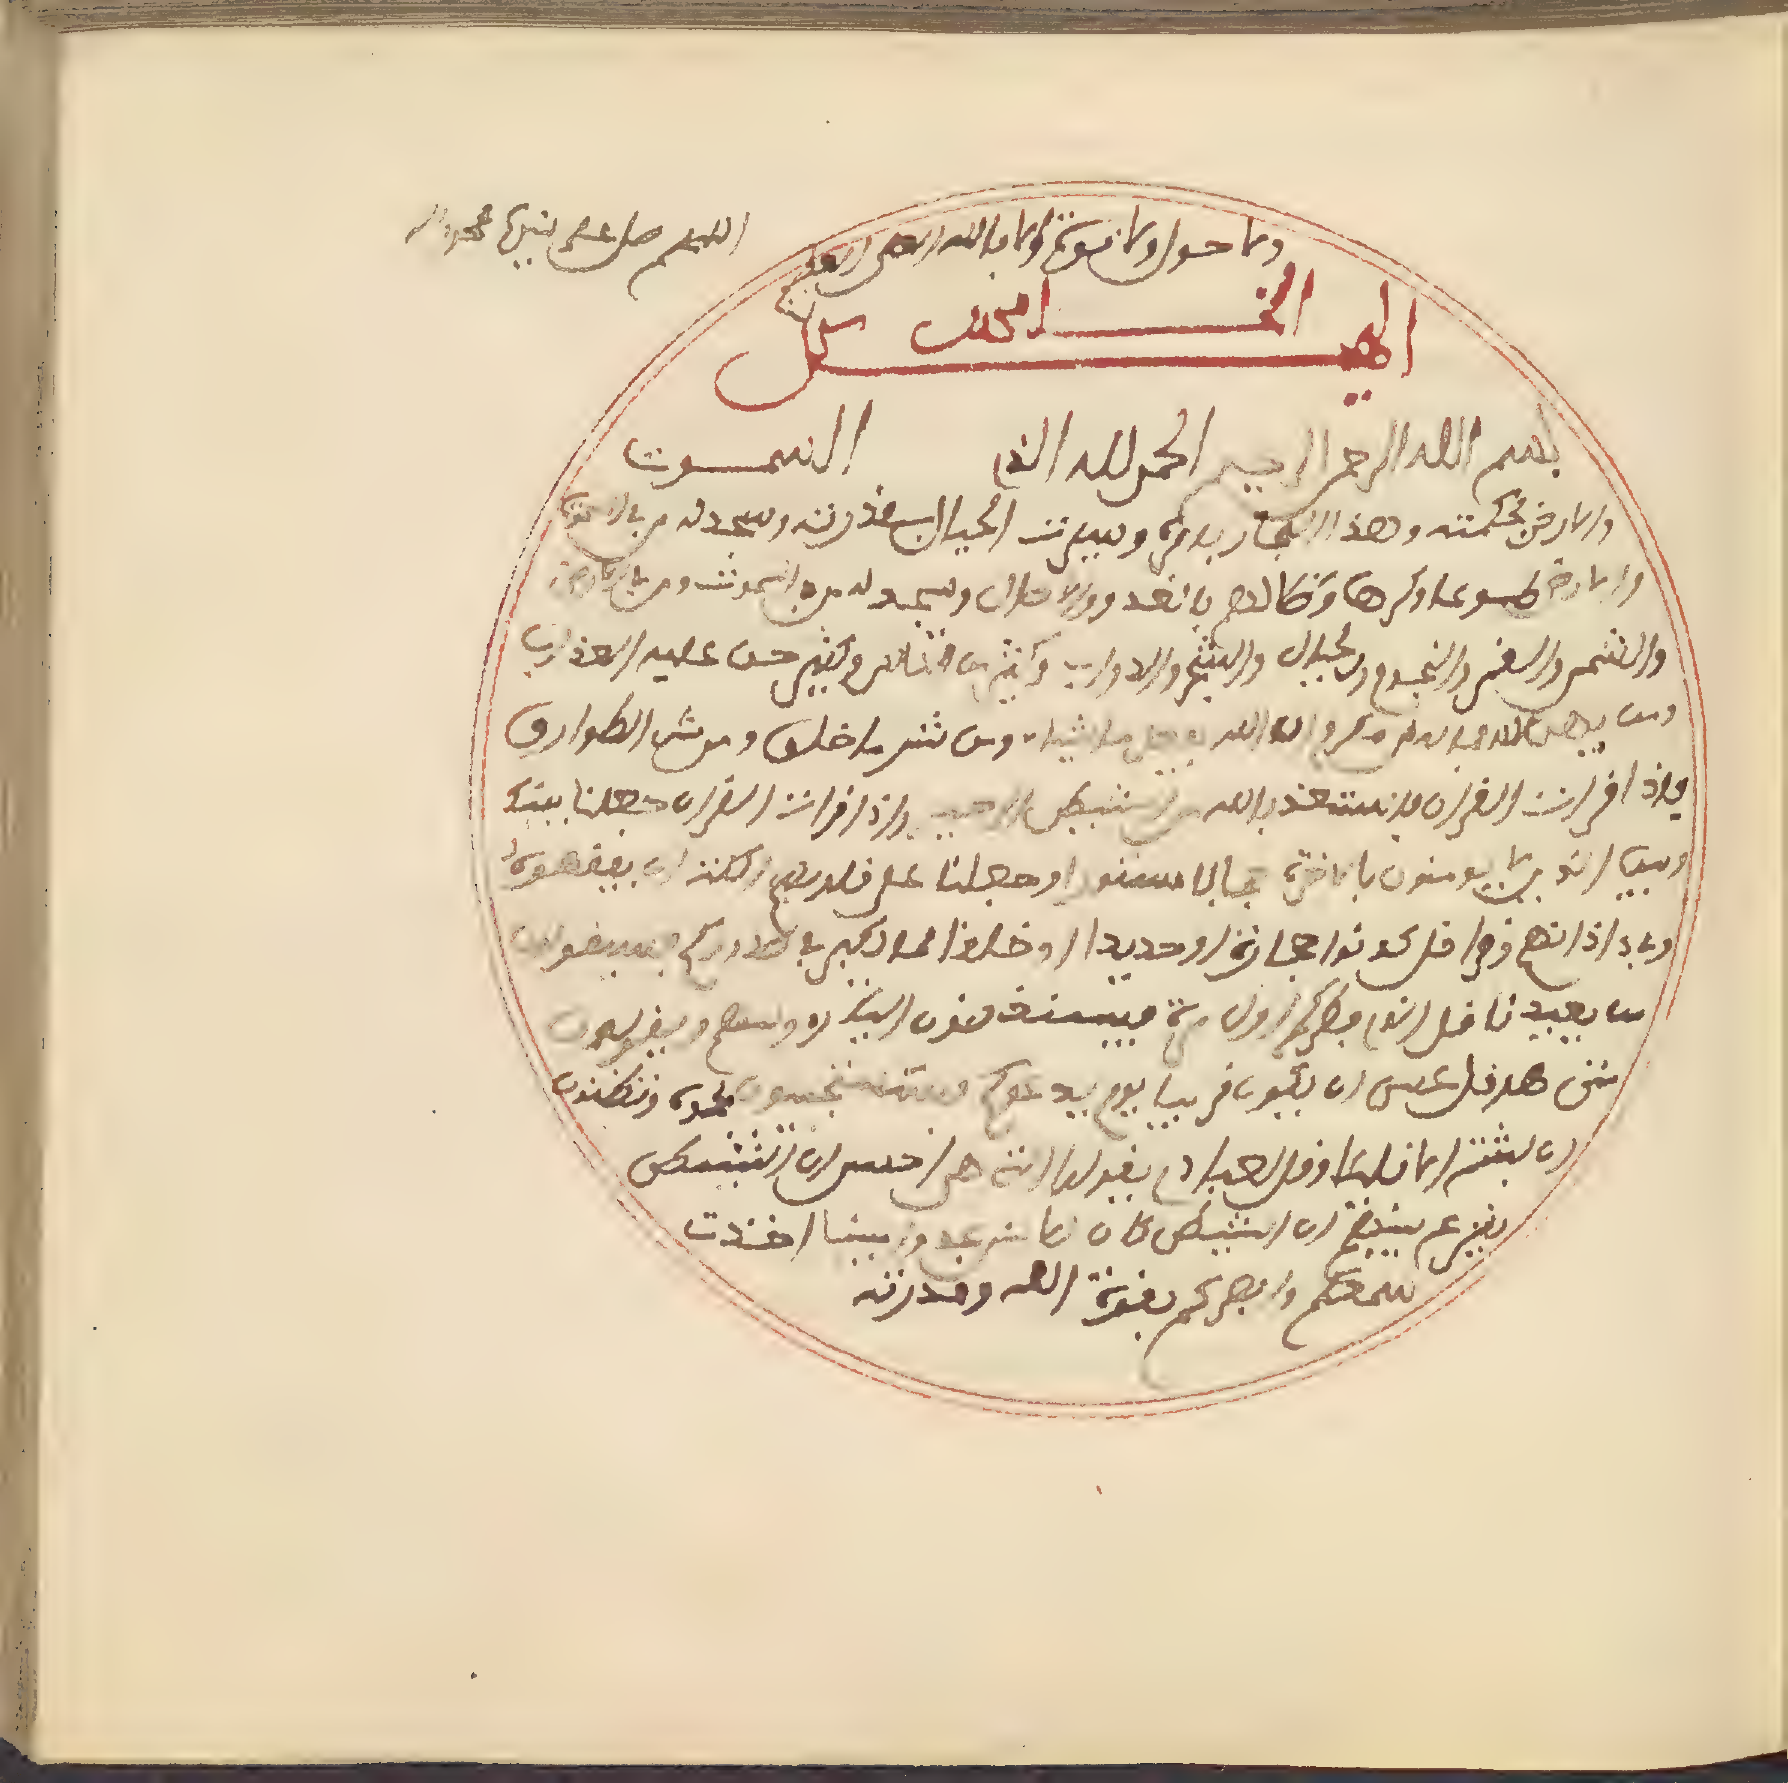 اللهم صل على نبيك محمد واله
ولا حول ولا قوة الا بالله العلي العظيم
الخامس
الهيكل
بسم الله الرحمن الرحيم الحمد لله الذي السموت
والارض بحكمته وهذا البحار بامره وسيرت الجبال بقدرته وسجد له من في السموت
والارض طوعا وكرها وظلالهم بالغدو والاصال وسجد له من في السموت ومن في الارض
والشمس والقمر والنجوم والجبال والشجر والدواب وكثير من الناس وكثير حق عليه العذاب
ومن يهن الله فما له من مكرم ان الله يفعل ما يشاء ومن شر ما خلق ومن شر الطوارق
واذا قرات القران فاستعذ بالله من الشيطن الرجيم واذا قرات القران جعلنا بينك
وبين الذين لا يومنون بالاخرة حجابا مستورا وجعلنا على قلوبهم اكنة ان يفقهوه
وفي اذانهم وقرا قل كونوا حجارة او حديدا او خلقا مما يكبر في صدوركم فسيقولون
من يعيدنا قل الذي فطركم اول مرة فسينغضون اليك روسهم ويقولون
متى هو قل عسى ان يكون قريبا يوم يدعوكم فتستجيبون بحمده وتظنون
ان لبثتم الا قليلا وقل لعبادي يقولوا التي هي احسن ان الشيطن
ينزغ بينهم ان الشيطن كان للانسن عدوا مبينا اخذت
سمعكم وابصركم بقوة الله وقدرته